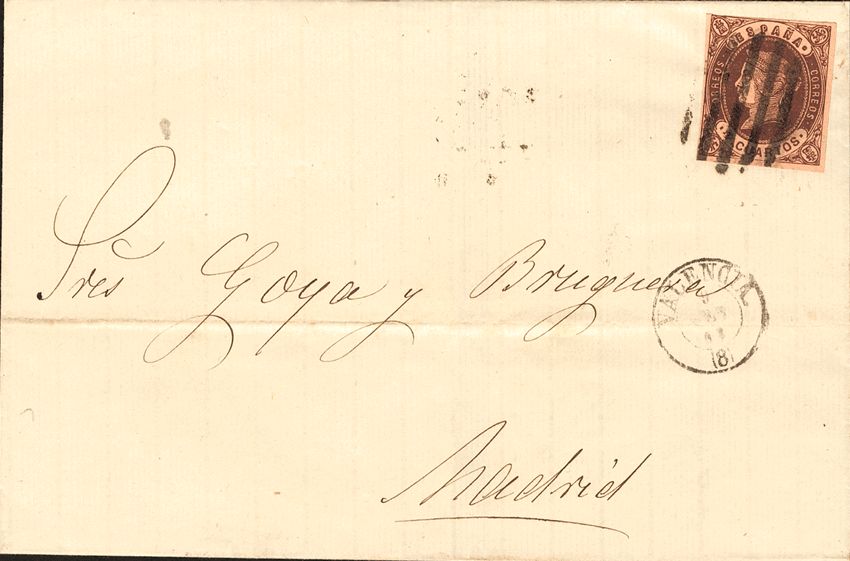 ESPAÑA
CORREOS
CORREOS
CUARTOS
Sres Goya y Bruguera
VALENCIA
(8)
Madrid